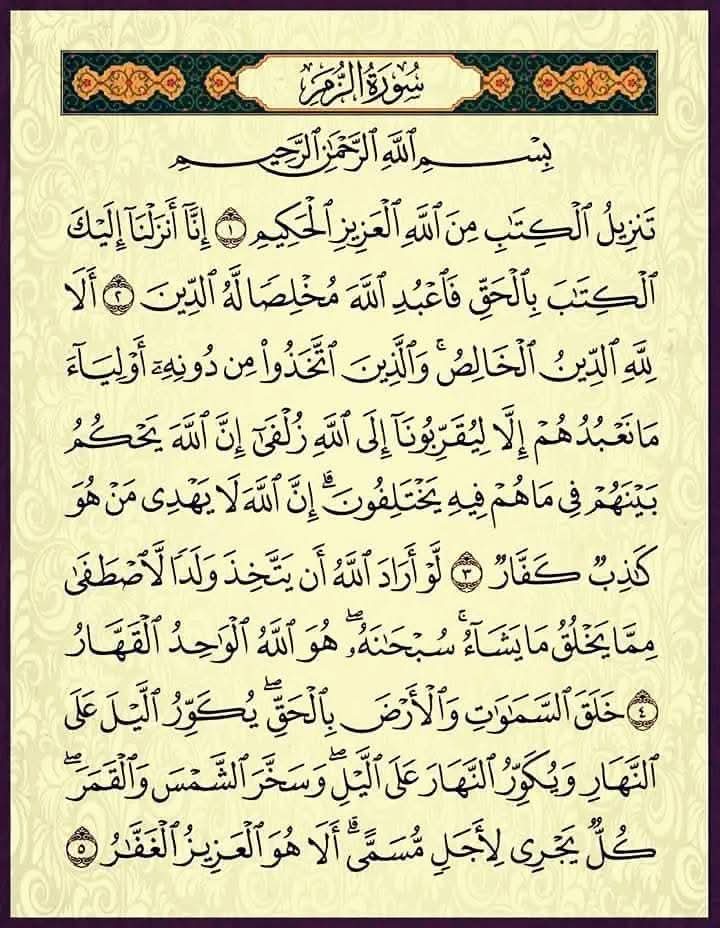 سُورَةُ الزُّمَر
بِسْمِ ٱللَّهِ ٱلرَّحْمَٰنِ ٱلرَّحِيمِ
تَنزِيلُ ٱلْكِتَٰبِ مِنَ ٱللَّهِ ٱلْعَزِيزِ ٱلْحَكِيمِ ١ إِنَّآ أَنزَلْنَآ إِلَيْكَ
ٱلْكِتَٰبَ بِٱلْحَقِّ فَٱعْبُدِ ٱللَّهَ مُخْلِصًا لَّهُ ٱلدِّينَ ٢ أَلَا
لِلَّهِ ٱلدِّينُ ٱلْخَالِصُ ۚ وَٱلَّذِينَ ٱتَّخَذُوا۟ مِن دُونِهِۦٓ أَوْلِيَآءَ
مَا نَعْبُدُهُمْ إِلَّا لِيُقَرِّبُونَآ إِلَى ٱللَّهِ زُلْفَىٰٓ إِنَّ ٱللَّهَ يَحْكُمُ
بَيْنَهُمْ فِى مَا هُمْ فِيهِ يَخْتَلِفُونَ ۗ إِنَّ ٱللَّهَ لَا يَهْدِى مَنْ هُوَ
كَٰذِبٌ كَفَّارٌ ٣ لَّوْ أَرَادَ ٱللَّهُ أَن يَتَّخِذَ وَلَدًا لَّٱصْطَفَىٰ
مِمَّا يَخْلُقُ مَا يَشَآءُ ۚ سُبْحَٰنَهُۥ ۖ هُوَ ٱللَّهُ ٱلْوَٰحِدُ ٱلْقَهَّارُ
٤ خَلَقَ ٱلسَّمَٰوَٰتِ وَٱلْأَرْضَ بِٱلْحَقِّ ۖ يُكَوِّرُ ٱلَّيْلَ عَلَى
ٱلنَّهَارِ وَيُكَوِّرُ ٱلنَّهَارَ عَلَى ٱلَّيْلِ ۖ وَسَخَّرَ ٱلشَّمْسَ وَٱلْقَمَرَ ۖ
كُلٌّ يَجْرِى لِأَجَلٍ مُّسَمًّى ۗ أَلَا هُوَ ٱلْعَزِيزُ ٱلْغَفَّٰرُ ٥